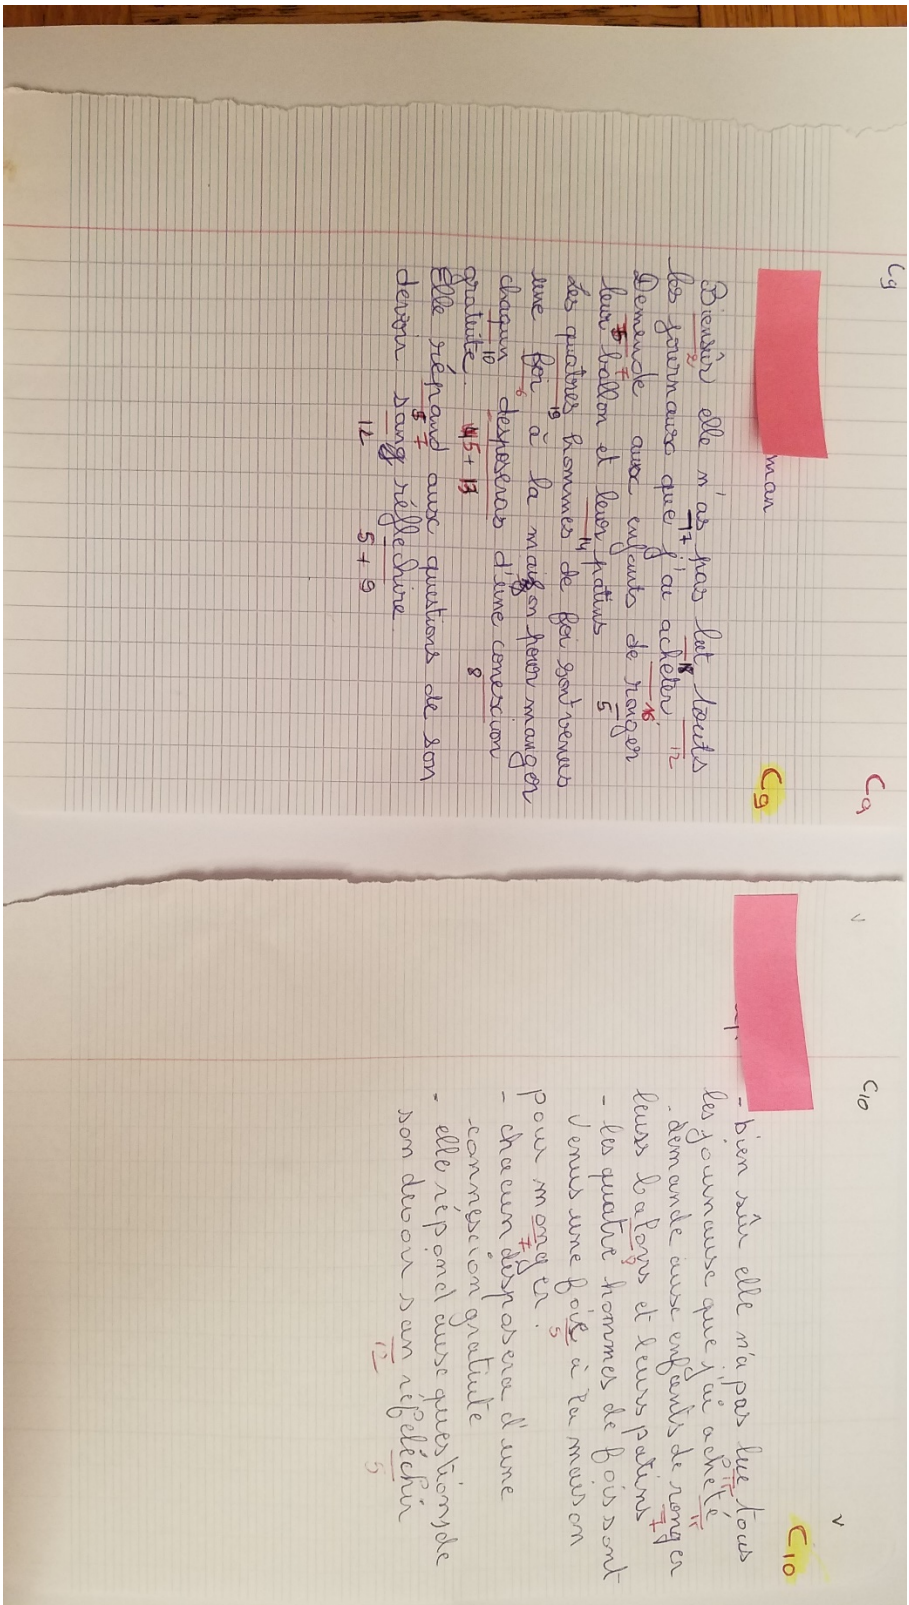 C9
C9
man
C9
Biensûr elle n'as pas lut touts
2 17 18 12
les journaux que j'ai achèter
16
Demende aux enfants de ranger
7
leur ballon et leur patins
14 5
Les quatres hommes de foi sont venus
19
une foi à la maison pour manger
6
chaqun desposeras d'une conexion
10 8
gratuite.
5 + 13
Elle répand aux questions de son
7
devoir sang réfléchire
12 5 + 9
v
C10
v
C10
- bien sûr elle n'a pas lue tous
les journaux que j'ai acheté
- demande aux enfants de ronger
7
leurs balons et leurs patins
9
- les quatre hommes de fois sont
venus une foie à la maison
5
pour monger.
7
- chacun disposera d'une
connexion gratiute
- elle répond aux questions de
son devoir san réfeléchir
12 5